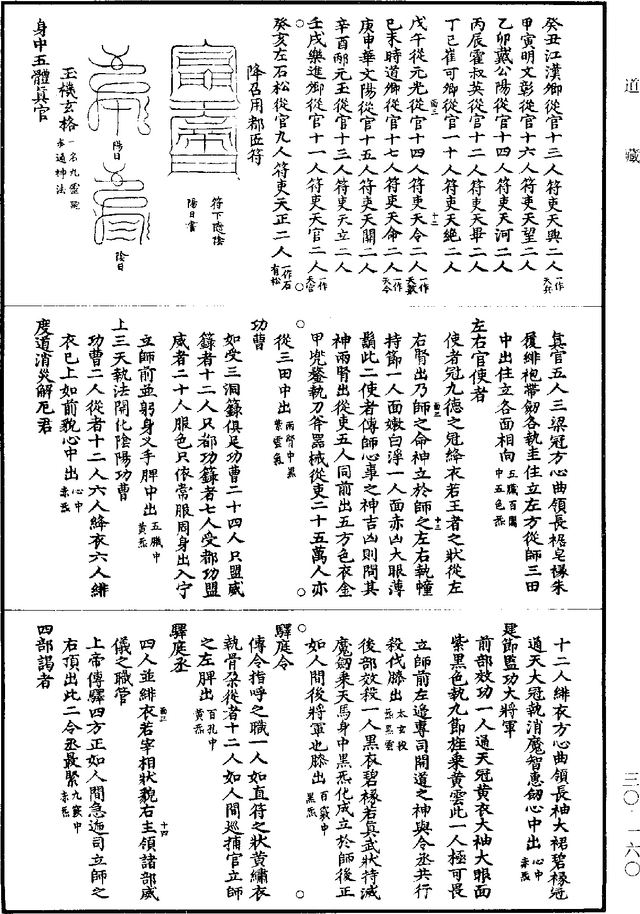 道藏
癸丑江漢卿從官十三人符吏天興二人一作天兵
甲寅明文彰從官十六人符吏天望二人
乙卯戴公陽從官十四人符吏天河二人
丙辰霍叔英從官十二人符吏天畢二人
丁巳崔可卿從官一十人符吏天絶二人
戊午從元光從官十四人符吏天令二人一作天敷
己未時道卿從官十七人符吏天俞二人一作天令
庚申華文陽從官十五人符吏天開二人
辛酉邴元玉從官十三人符吏天立二人
壬戌樂進卿從官十一人符吏天官二人一作天官
癸亥左石松從官九人符吏天正二人一作石有松
降召用都匠符
符下隨陰陽日書
陽日
陰日
玉機玄格一名九靈飛步通神法
身中五體真官
真官五人三梁冠方心曲領長裾皂椽朱
履緋袍帶劒各執圭住立左方從師三田
中出住立各面相向五臟百關中五色炁
左右官使者
使者冠九德之冠絳衣若王者之狀從左
右腎出乃師之命神立於師之左右執幢
持節一人面嫩白淨一人面赤凶大眼薄
鬍此二使者傳師心事之神吉凶則問其
神兩腎出從吏五人同前出五方色衣金
甲兜鍪執刀斧器械從吏二十五萬人亦
從三田中出兩腎中黑紫雲氣
功曹
如受三洞籙俱足功曹二十四人只盟威
籙者十二人只都功籙者七人受都功盟
威者二十人服色只依常服周身出入守
立師前並躬身叉手脾中出五臟中黃炁
上三天執法開化陰陽功曹
功曹二人從者十二人六人絳衣六人緋
衣已上如前貌心中出心中赤炁
度道消災解厄君
十二人緋衣方心曲領長袖大裙碧緣冠
通天大冠執消魔智惠劒心中出心中赤炁
建節監功大將軍
前部效功一人通天冠黃衣大袖大眼面
紫黑色執九節旌乘黃雲此一人極可畏
立師前左邊專司開道之神與令丞共行
殺伐膝出太玄投炁黑雲
後部效殺一人黑衣碧緣若真武狀持滅
魔劒乘天馬身中黑炁化成立於師後正
如人間後將軍也膝出百竅中黑炁
驛庭令
傳令指呼之職一人如直符之狀黃繡衣
執骨朶從者十二人如人間巡捕官立師
之左脾出百孔中黃炁
驛庭丞
四人並緋衣若宰相狀貌右主領諸部威
儀之職管
上帝傳驛四方正如人間急遞司立師之
右頂出此二令丞最緊九竅中赤炁
四部謁者
三〇·一六〇